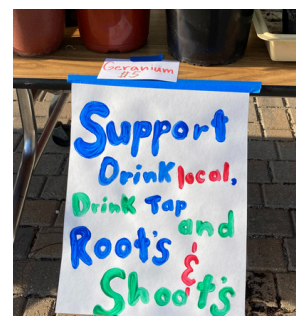 Geranium
#5
Support
Drink local,
Drink Tap
and
Root's &
Shoot's